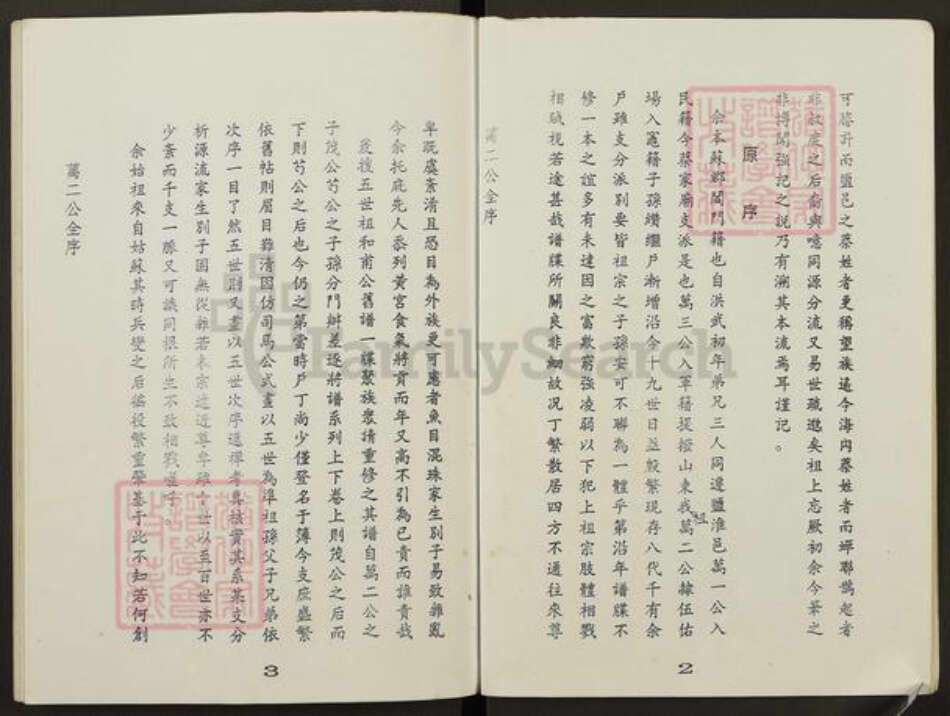 可勝計而鹽邑之蔡姓者更稱望族遍今海內蔡姓者而嬋聯鵲起者
非叔度之后裔與噫同源分流又易世疏邈矣祖上忘厥初余今筆之
非博聞強記之說乃有溯其本流焉耳謹記。
原序
余本蘇鄰閶門籍也自洪武初年弟兄三人同遷鹽淮邑萬一公入
民籍今蔡家廟支派是也萬三公入軍籍提撥山東我萬二公隸伍佑
場入竈籍子孫纘繼戶漸增沿今十九世日益殷繁現存八代千有余
戶雖支分派別要皆祖宗之子孫安可不聯為一體乎第沿年譜牒不
修一本之誼多有未達因之富欺窮強凌弱以下犯上祖宗肢體相戮
祖
相賊視若途甚哉譜牒所關良非細故況丁繁散居四方不通往來尊
萬二公全序
2
卑既虞紊淆且恐目為外族更可慮者魚目混珠家生別子易致雜亂
今余托庇先人忝列黃宮食氣將貢而年又高不引為己責而誰責哉
爰搜五世祖和甫公舊譜一牒聚族眾請重修之其譜自萬二公之
子茂公芍公之子孫分門辦差逐將譜系列上下卷上則茂公之后而
下則芍公之后也今仍之第當時戶丁尚少僅登名于簿今支庶盛繁
依舊帖則眉目難清因仿司馬公式畫以五世為準祖孫父子兄弟依
次序一目了然五世則又畫以五世次序遞禪考具核實其系某支分
析源流家生別子固無從雜若未宗遠近尊卑雖十世以至百世亦不
少紊而千支一脈又可談同根所生不致相戮
余始祖來自姑蘇其時兵燹之后徭役繁重肇基于此不知若何創
萬二公全序
3
FamilySearch